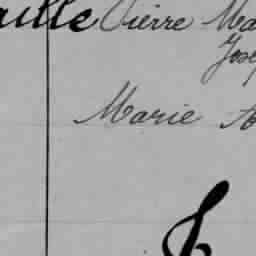 aille Pierre Ma
Jose
Marie A